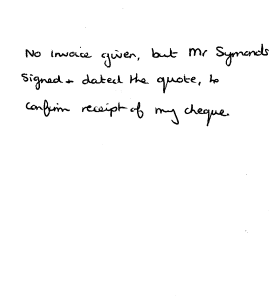 No Invoice given, but Mr Symonds
Signed + dated the quote, to
confirm receipt of my cheque.